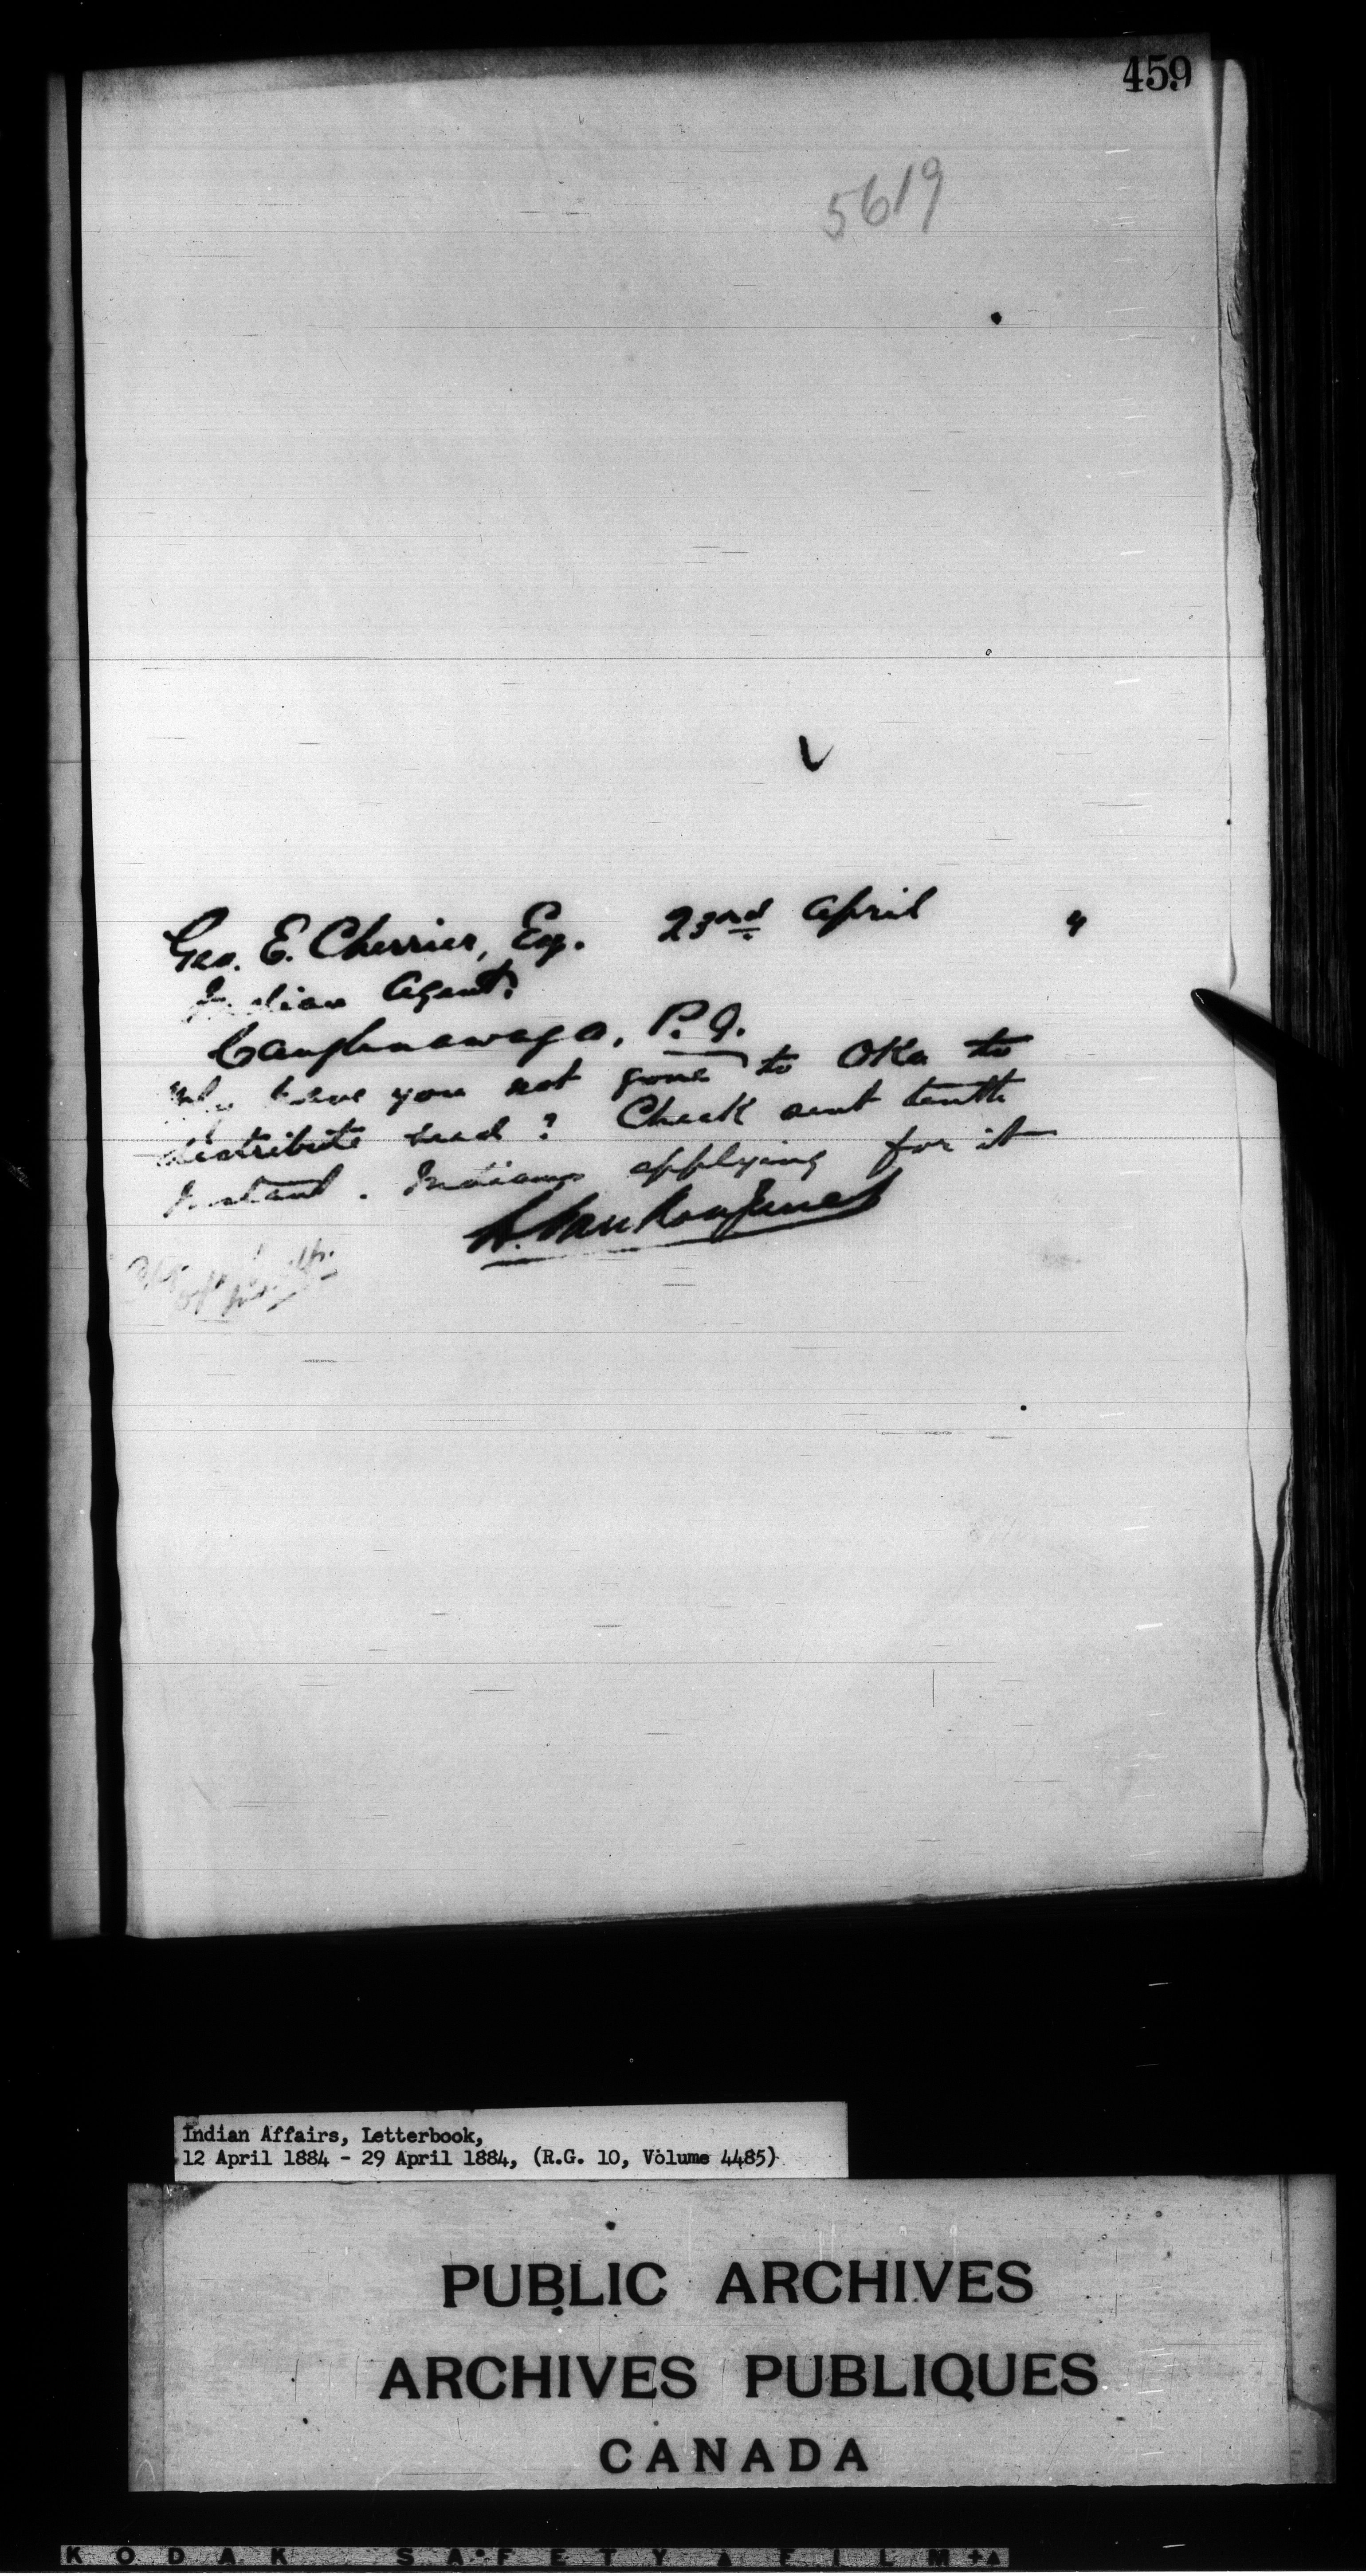 459
5619
Geo. E. Cherrier, Esq. 23rd April 4
Indian Agent.
Caughnawaga, P.Q.
Why have you not gone to Oka to
distribute seed? Check sent tenth
Instant. Indians applying for it
L. VanKoughnet
Indian Affairs, Letterbook,
12 April 1884 - 29 April 1884, (R.G. 10, Volume 4485)
PUBLIC ARCHIVES
ARCHIVES PUBLIQUES
CANADA
KODAK SAFETY FILM